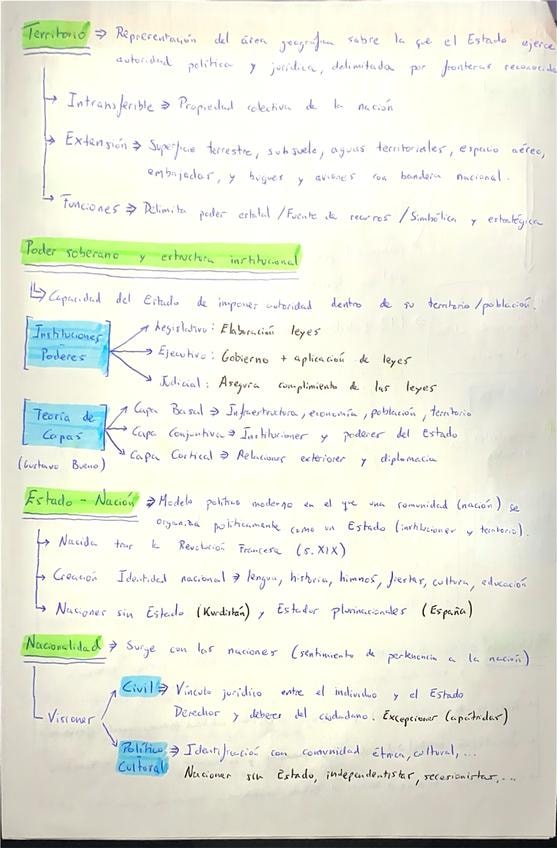 Territorio ⇒ Representación del área geográfica sobre la que el Estado ejerce
autoridad política y jurídica, delimitada por fronteras reconocida
→ Intransferible ⇒ Propiedad colectiva de la nación
→ Extensión ⇒ Superficie terrestre, subsuelo, aguas territoriales, espacio aéreo,
embajadas, y buques y aviones con bandera nacional.
→ Funciones ⇒ Delimita poder estatal / Fuente de recursos / Simbólica y estratégica
Poder soberano y estructura institucional
↳ Capacidad del Estado de imponer autoridad dentro de su territorio / población.
Instituciones
Poderes
Legislativo: Elaboración leyes
Ejecutivo: Gobierno + aplicación de leyes
Judicial: Asegura cumplimiento de las leyes
Teoría de
Capas
(Gustavo Bueno)
Capa Basal ⇒ Infraestructura, economía, población, territorio
Capa Conjuntiva ⇒ Instituciones y poderes del Estado
Capa Cortical ⇒ Relaciones exteriores y diplomacia
Estado - Nación ⇒ Modelo político moderno en el que una comunidad (nación) se
organiza políticamente como un Estado (instituciones y territorio).
→ Nacida tras la Revolución Francesa (s. XIX)
→ Creación Identidad nacional ⇒ lengua, historia, himnos, fiestas, cultura, educación
→ Naciones sin Estado (Kurdistán) y Estados plurinacionales (España)
Nacionalidad ⇒ Surge con las naciones (sentimiento de pertenencia a la nación)
Visiones
Civil ⇒ Vínculo jurídico entre el individuo y el Estado
Derechos y deberes del ciudadano. Excepciones (apátridas)
Político ⇒ Identificación con comunidad étnica, cultural, ...
Cultural Naciones sin Estado, independentistas, secesionistas, ...